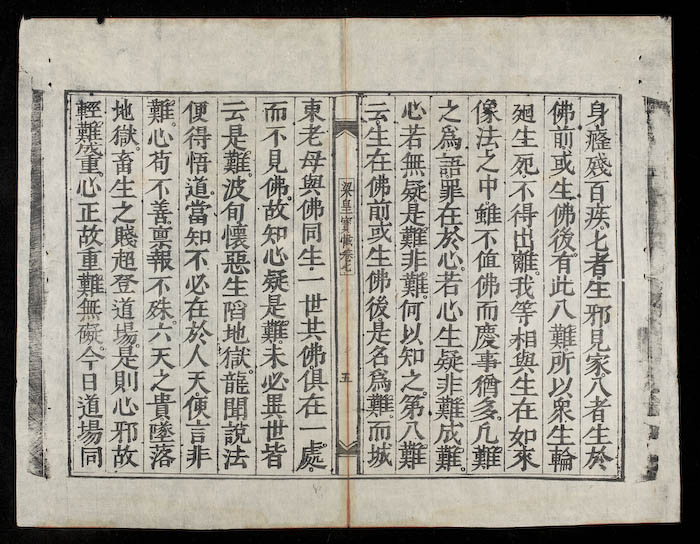 身癃殘百疾。七者生邪見家。八者生於
佛前或生佛後。有此八難所以衆生輪
廻生死不得出離。我等相與生在如來
像法之中。雖不值佛而慶事猶多。凡難
之爲語罪在於心。若心生疑非難成難。
心若無疑是難非難。何以知之。第八難
云生在佛前或生佛後是名爲難。而城
梁皇寶懺卷七 五
東老母與佛同生一世共佛。俱在一處。
而不見佛。故知心疑是難。未必異世皆
云是難。波旬懷惡生陷地獄。龍聞說法
便得悟道。當知不必在於人天。便言非
難。心苟不善。禀報不殊。六天之貴墜落
地獄。畜生之賤超登道場。是則心邪故
輕難成重。心正故重難無礙。今日道場同